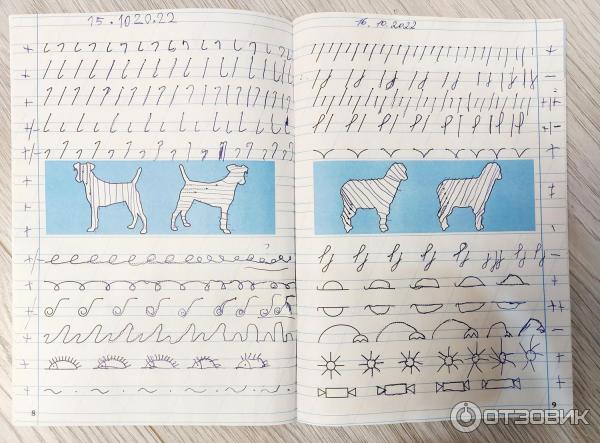 15.10 20.22
16.10.2022
8
9
ОТЗОВИК